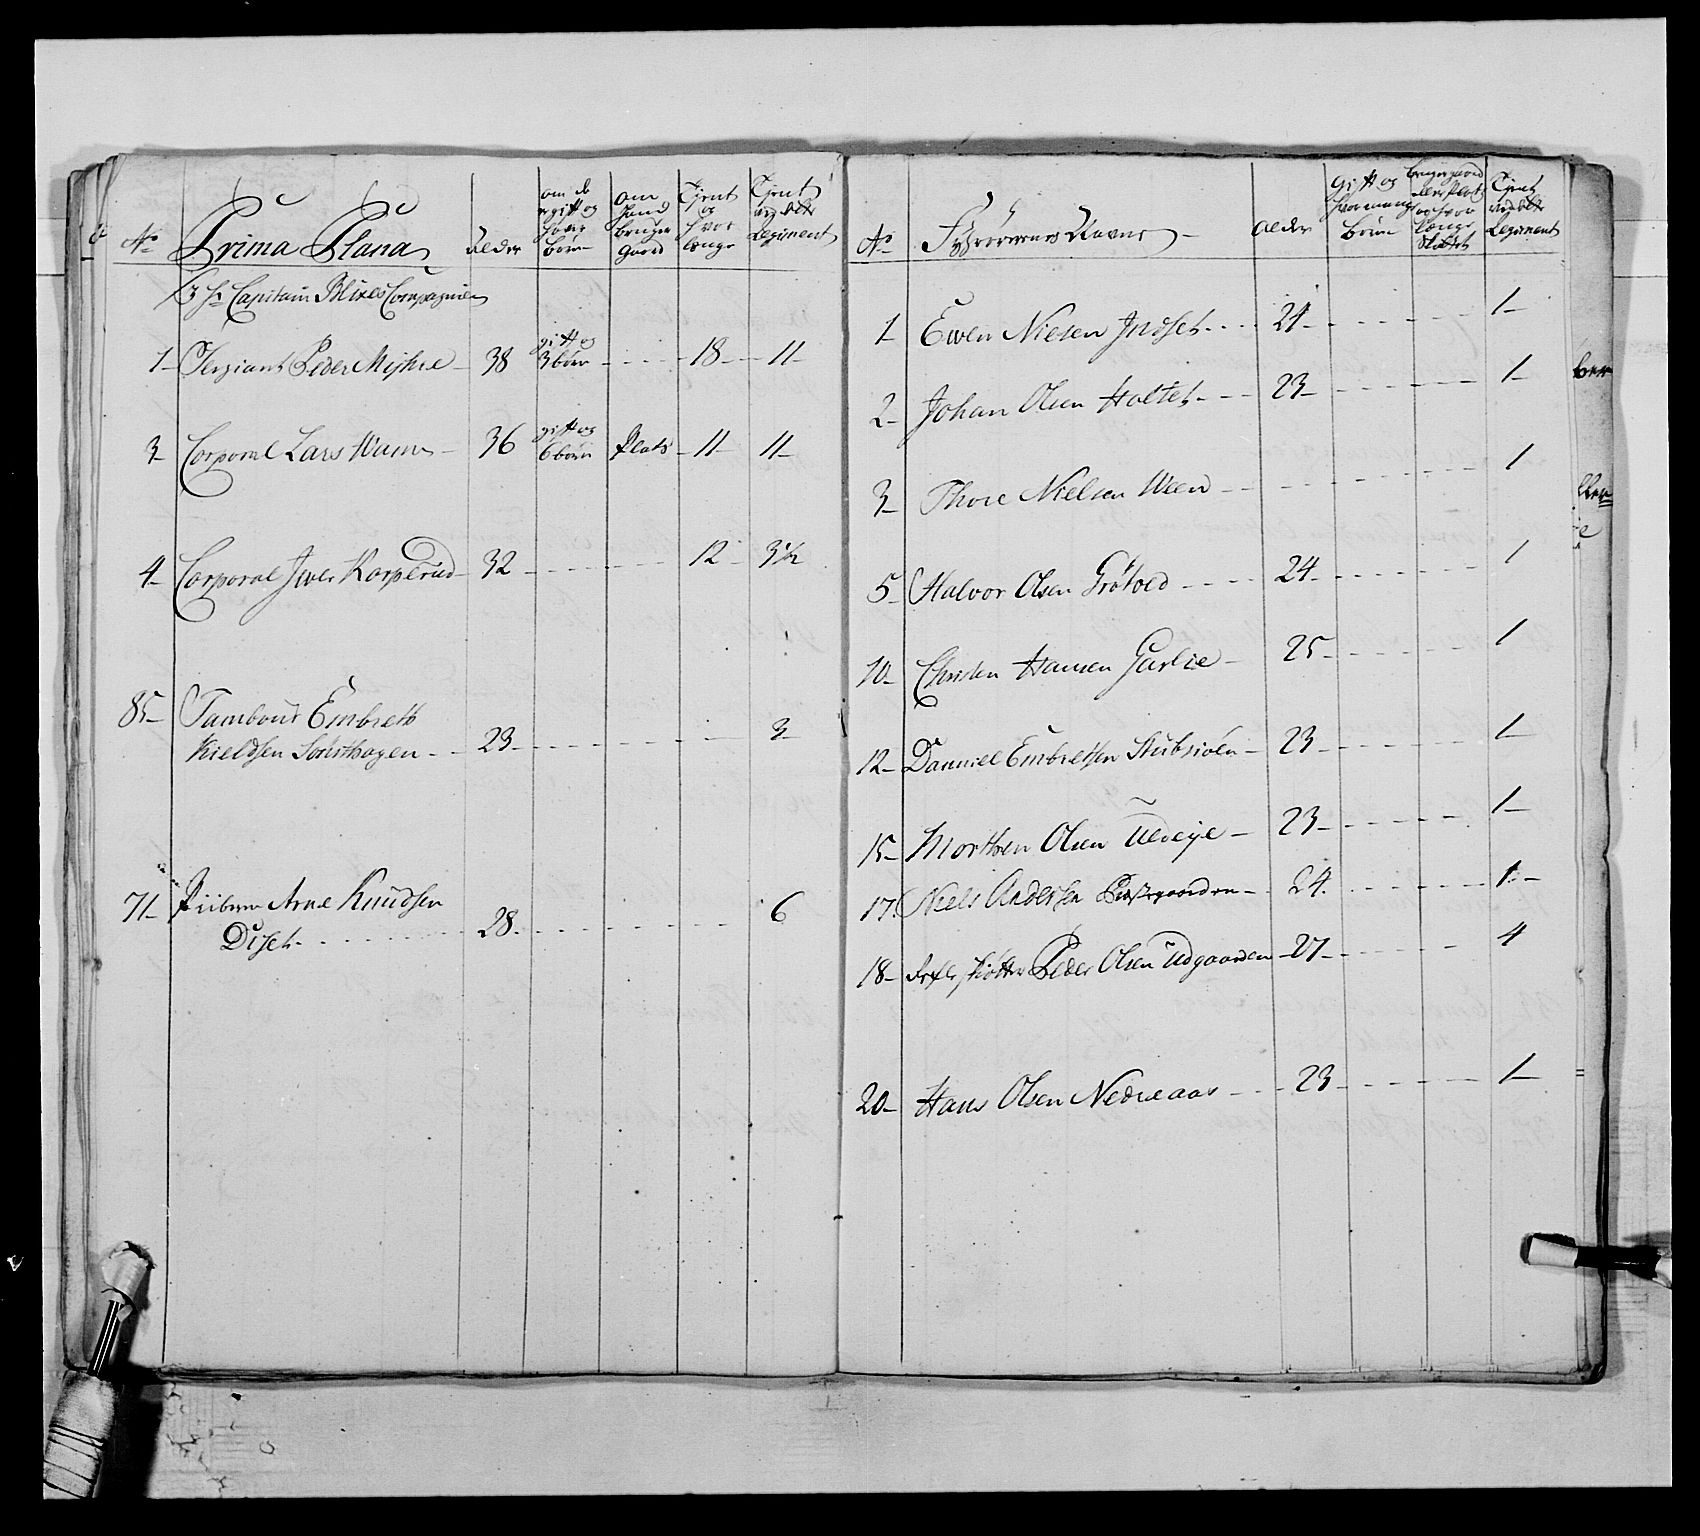 No Prima Plana Alder om de er gift og have børn om hand bruger Gaard Tient og hvor længe Tient ved dette Regiment
Hr Capitain Blixes Compagnie
1 Sergiant Peder Myhre 38 gift og 3 børn 18 11
3 Corporal Lars 36 gift og 6 børn Plads 11 11
4 Corporal Iver Korperud 32 12 3 1/2
85 Tambour Embret
Kieldsen 23 3
71 Arne Knudsen
Diset 28 6
No Navne Alder Gift og hvor mange børn Tient ved dette Regiment
1 Ewen Nielsen Indset 21 1
2 Johan Olsen Holtet 23 1
3 Thore Nielsen Ween 1
5 Halvor Olsen Grøtved 24 1
10 Christen Hansen Garlie 25 1
12 Danniel Embretsen 23 1
15 Morthen Olsen 23 1
17 Niels Andersen 24 1
18 Peder Olsen Udgaarden 27 4
20 Hans Olsen Nedreaas 23 1